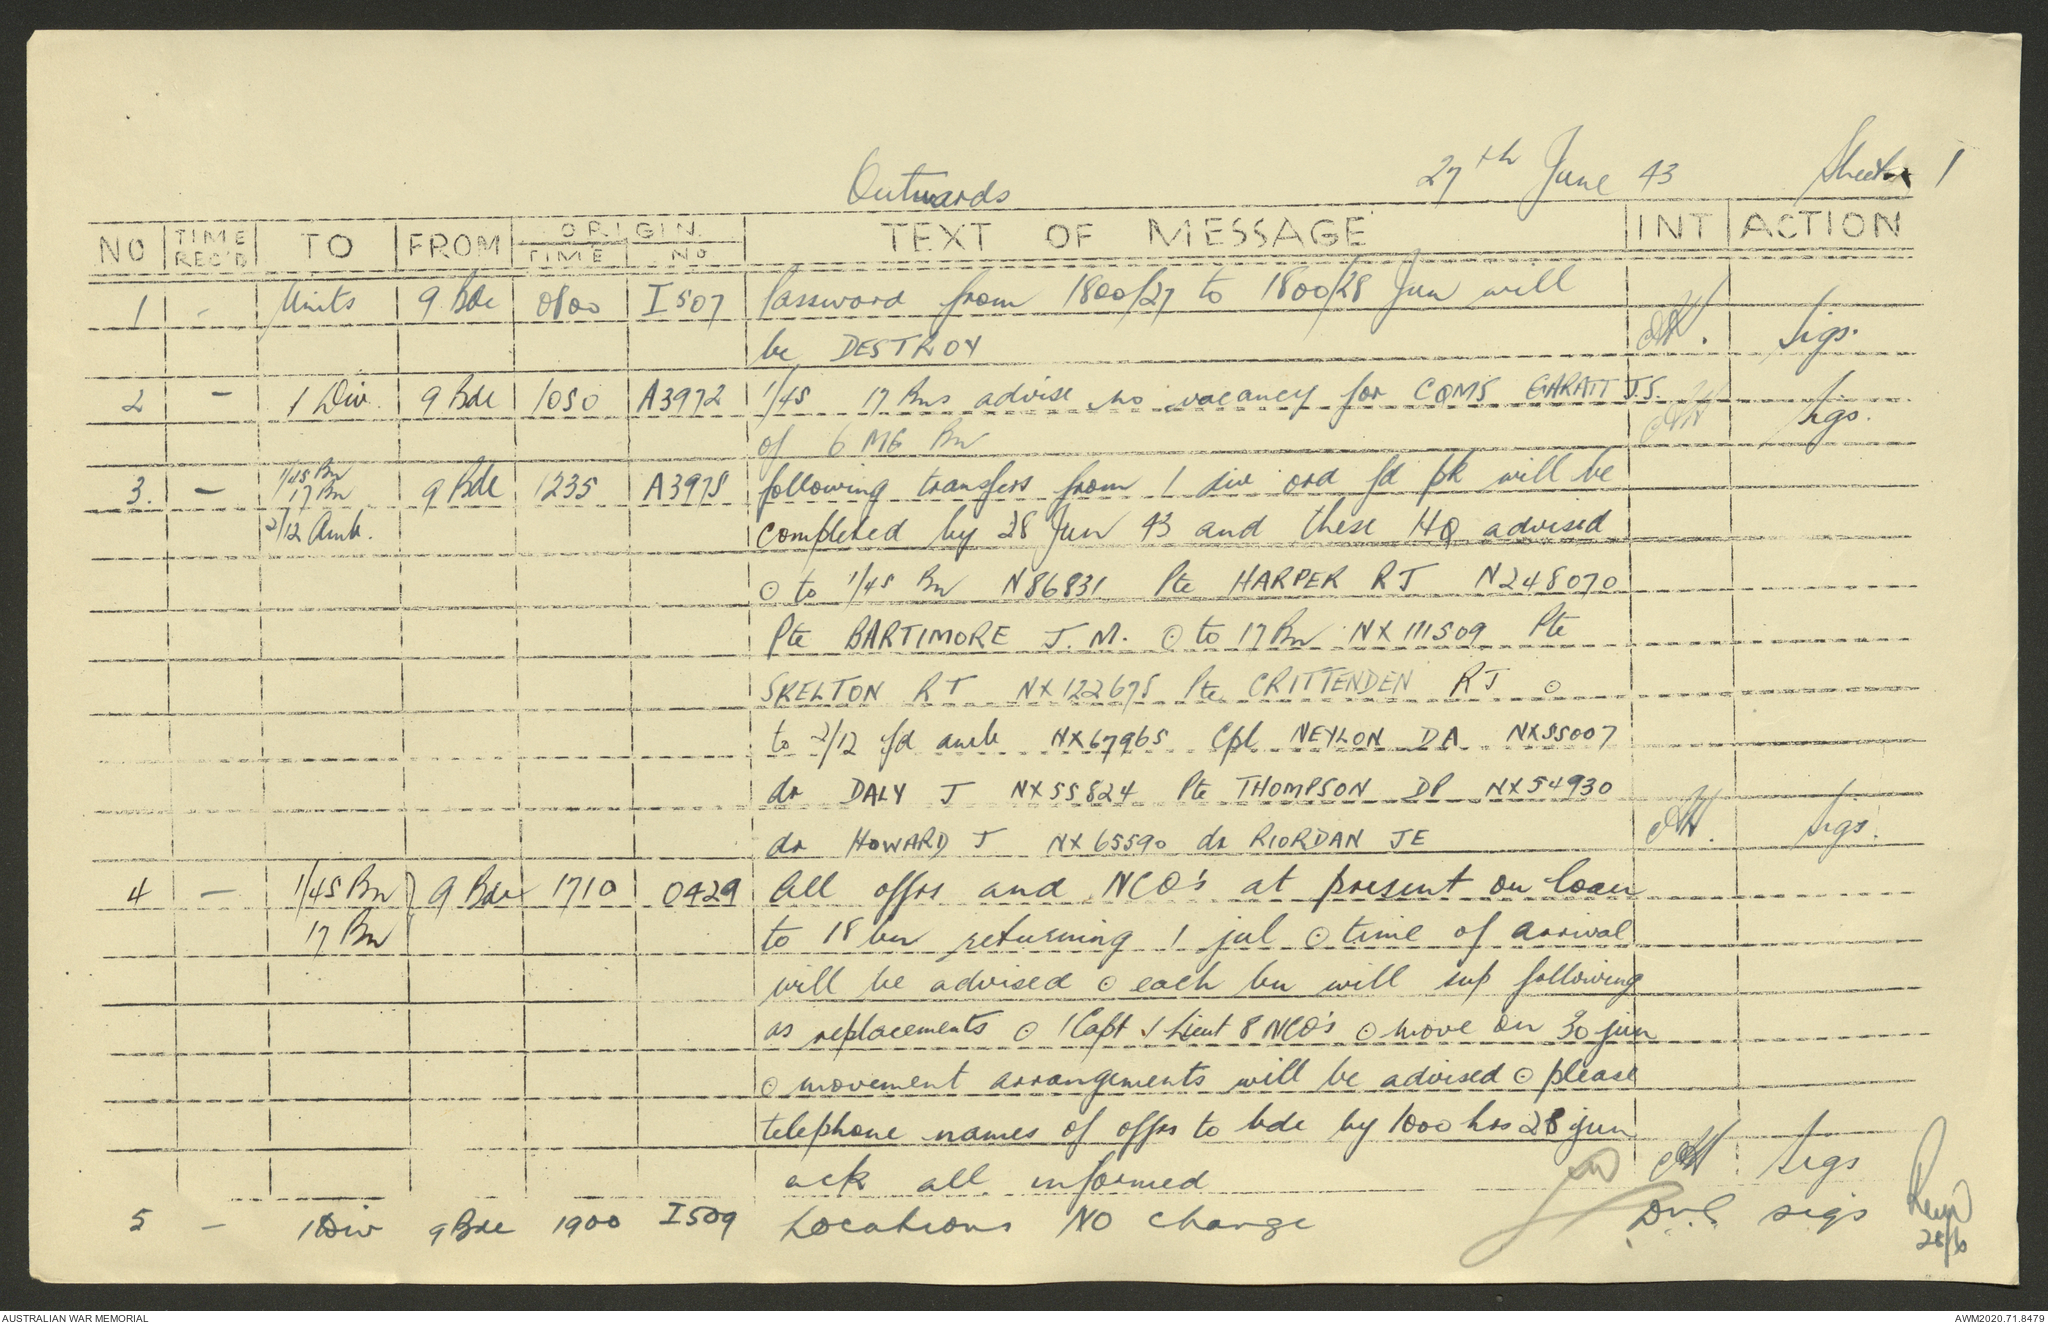 Outwards 27th June 43 Sheet 1
NO TIME REC'D TO FROM ORIGIN TIME NO TEXT OF MESSAGE INT ACTION
1 - Units 9 Bde 0800 I507 Password from 1800/27 to 1800/28 Jun will
be DESTROY Sigs.
2 - 1 Div. 9 Bde 1050 A3972 1/45 17 Bns advise no vacancy for CQMS GARATT J.S.
of 6 MG Bn Sigs.
3. - 1/45 Bn 9 Bde 1235 A3975 following transfers from 1 div ord fd pk will be
17 Bn
2/12 Amb. completed by 28 Jun 43 and these HQ advised
⊙ to 1/45 Bn N86831 Pte HARPER RJ N248070
Pte BARTIMORE J.M. ⊙ to 17 Bn NX111509 Pte
SKELTON RT NX122675 Pte CRITTENDEN RJ ⊙
to 2/12 fd amb NX67965 Cpl NEYLON DA NX55007
do DALY J NX55824 Pte THOMPSON DP NX54930
do HOWARD J NX65590 do RIORDAN JE Sigs.
4 - 1/45 Bn } 9 Bde 1710 O429 All offrs and NCO's at present on loan
17 Bn to 18 bn returning 1 jul ⊙ time of arrival
will be advised ⊙ each bn will sup following
as replacements ⊙ 1 Capt 1 Lieut 8 NCO's ⊙ move on 30 jun
⊙ movement arrangements will be advised ⊙ please
telephone names of offrs to bde by 1000 hrs 28 jun
ack all informed Sigs
5 - 1 Div 9 Bde 1900 I509 Locations NO change sigs
28/6
AUSTRALIAN WAR MEMORIAL AWM2020.71.8479